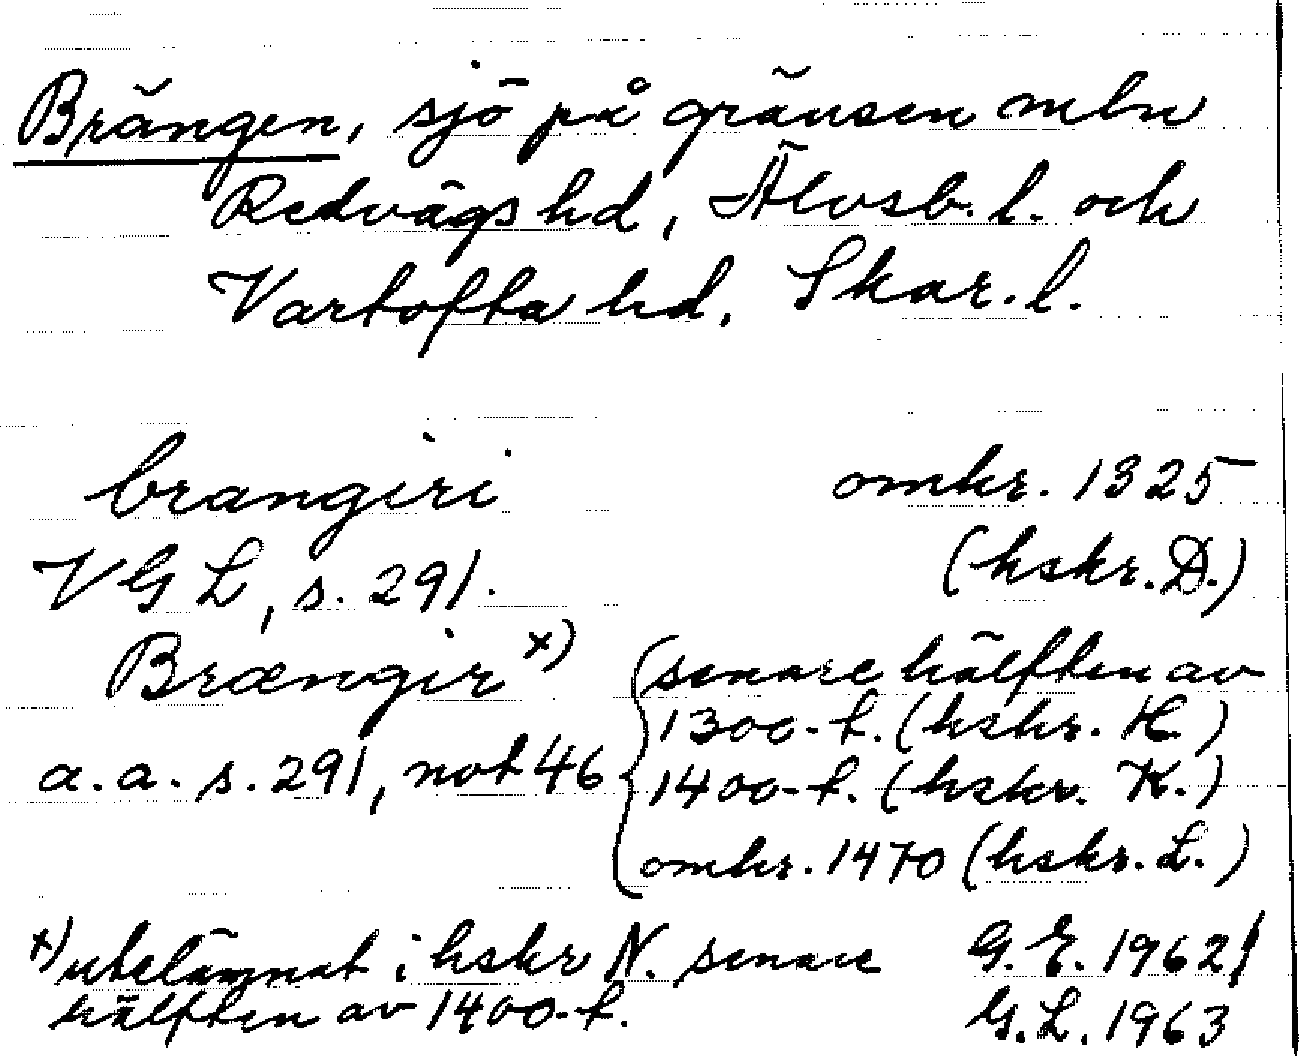 Brängen, sjö på gränsen mln
Redvägs hd, Älvsb. l. och
Vartofta hd, Skar. l.
brangiri omkr. 1325
VGL, s. 291. (hskr. D.)
Brængir x) (senare hälften av
1300-t. (hskr. H.)
a.a. s. 291, not 46 1400-t. (hskr. K.)
omkr. 1470 (hskr. L.)
x) utelämnat i hskr N. senare G. E. 1962/
hälften av 1400-t. G. L. 1963